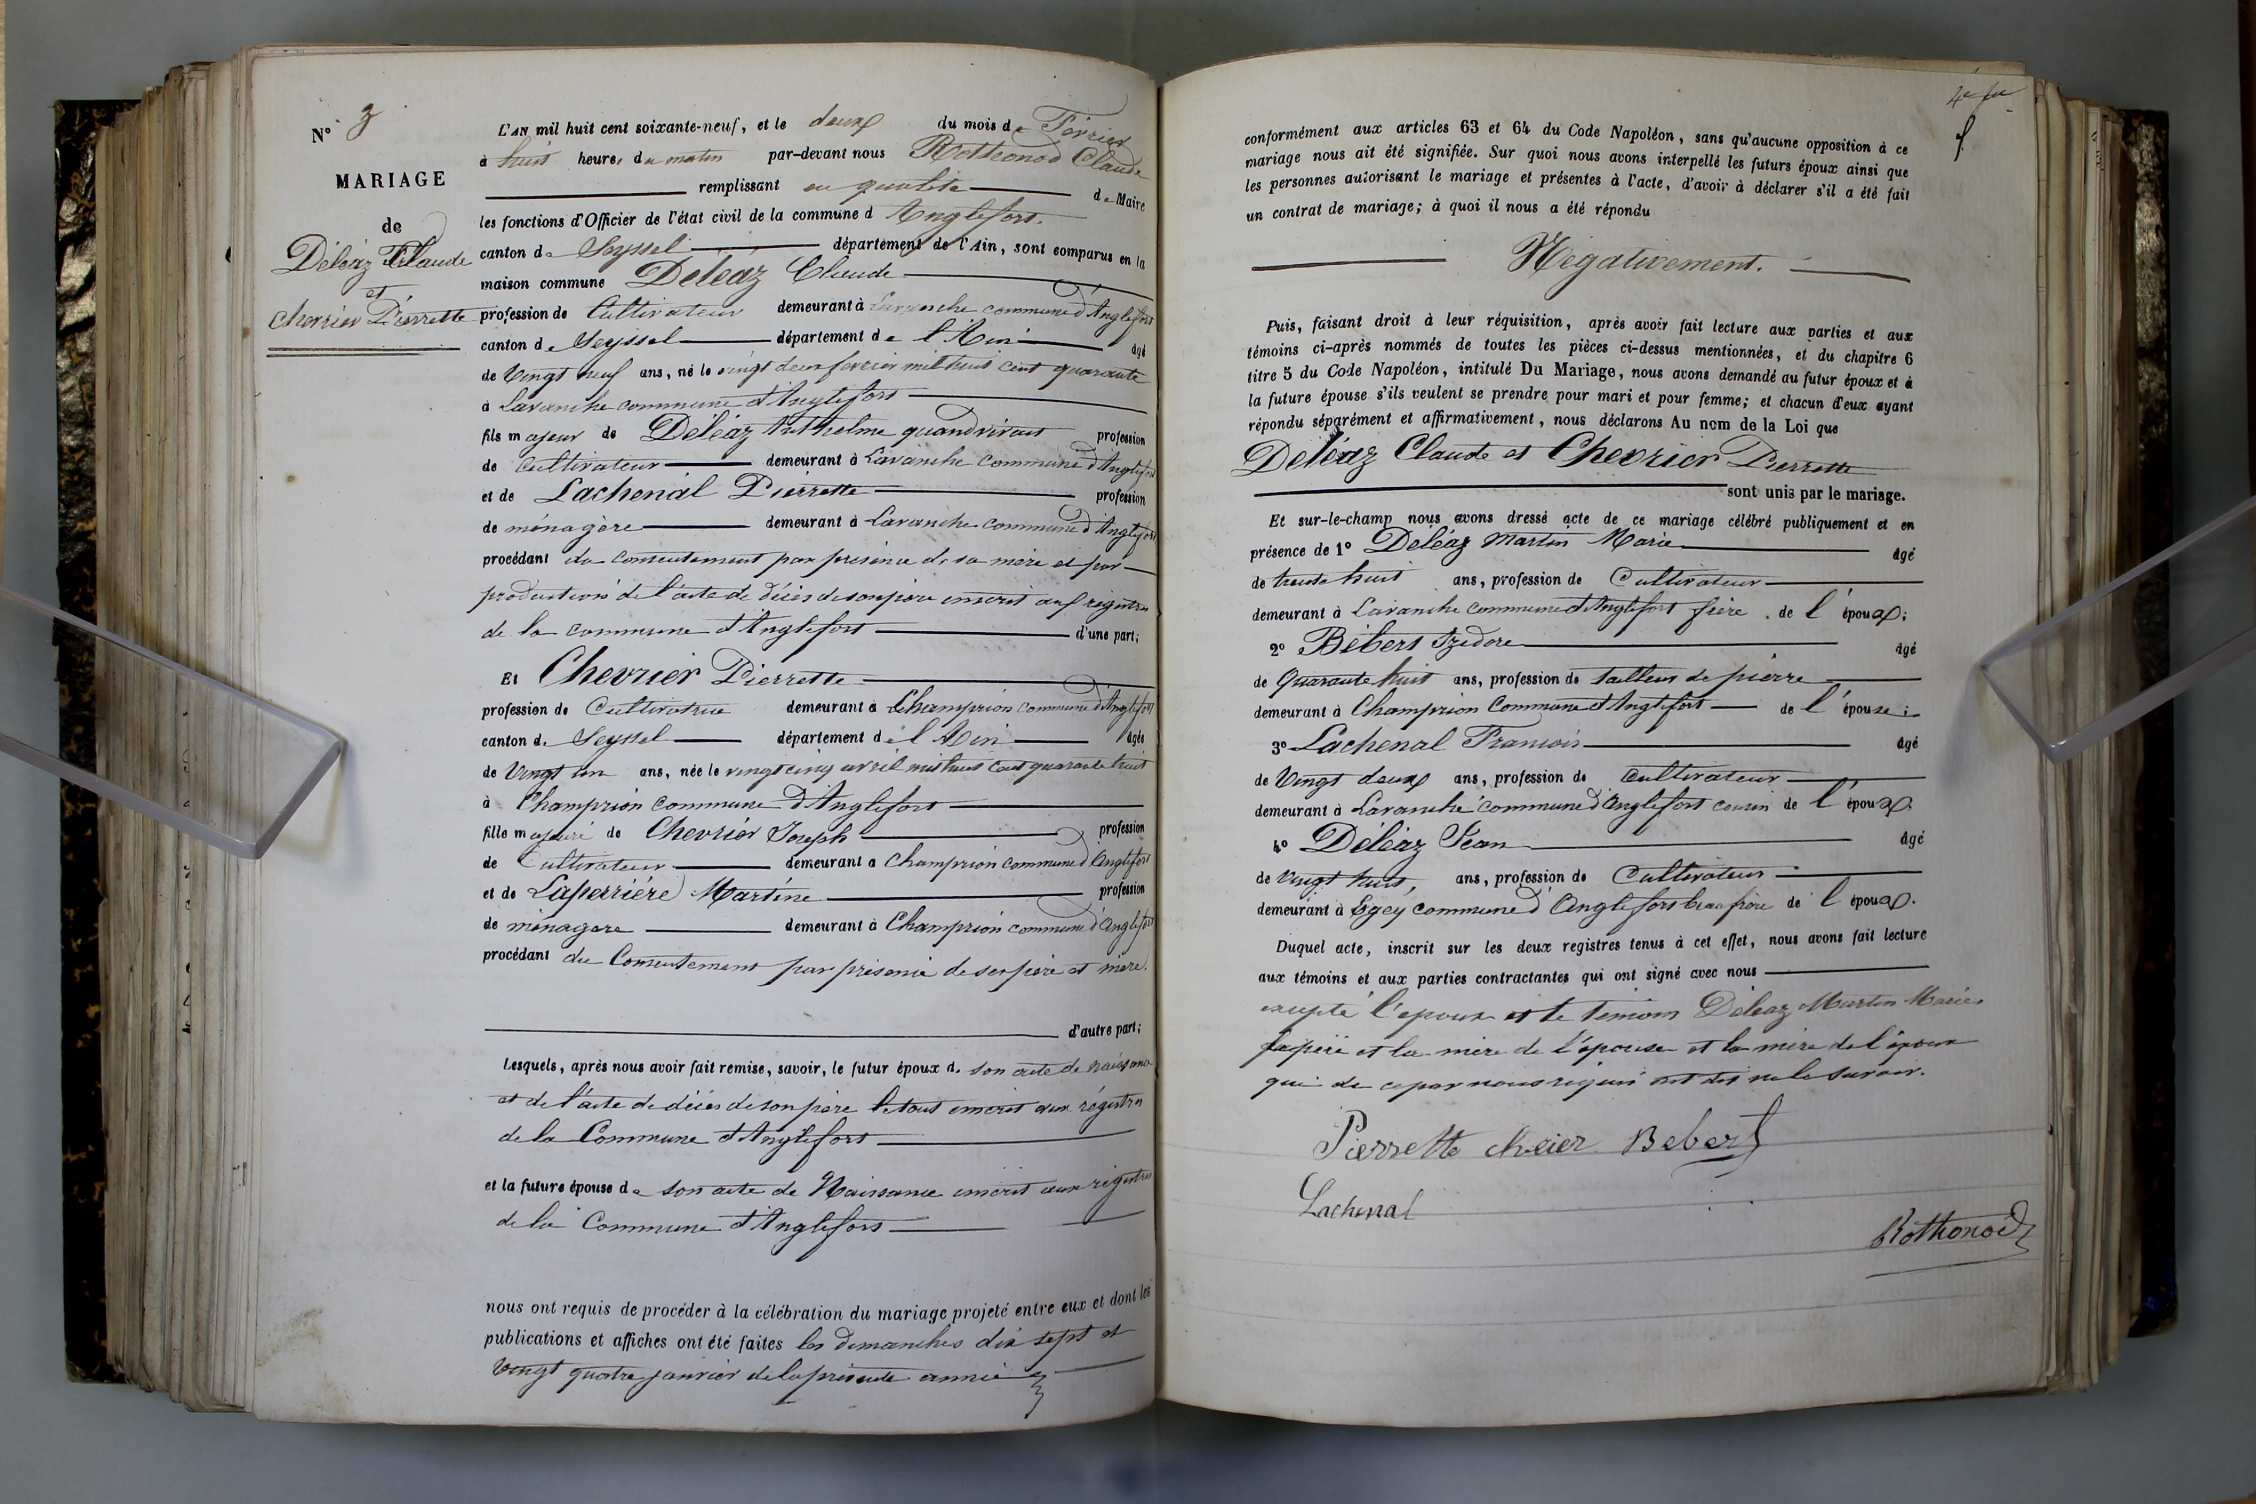 N° 3
MARIAGE
de
Déléaz Claude
et
Chevrier Pierrette
L'AN mil huit cent soixante-neuf, et le deux du mois de Février
à huit heures du matin par-devant nous Rothonod Claude
remplissant en qualité de Maire
les fonctions d'Officier de l'état civil de la commune d Anglefort.
canton de Seyssel département de l'Ain, sont comparus en la
maison commune Déléaz Claude
profession de Cultivateur demeurant à Lavanche commune d'Anglefort
canton de Seyssel département de l'Ain âgé
de Vingt neuf ans, né le vingt deux fevrier mil huit cent quarante
à Lavanche commune d'Anglefort
fils majeur de Déléaz Anthelme quand vivait profession
de Cultivateur demeurant à Lavanche commune d'Anglefort
et de Lachenal Pierrette profession
de ménagère demeurant à Lavanche commune d'Anglefort
procédant du consentement par présence de sa mère et par
production de l'acte de décès de son père inscrit aux registres
de la commune d'Anglefort d'une part;
Et Chevrier Pierrette
profession de Cultivatrice demeurant à Champrion commune d'Anglefort
canton de Seyssel département de l'Ain âgée
de Vingt un ans, née le vingt cinq avril mil huit cent quarante huit
à Champrion commune d'Anglefort
fille majeure de Chevrier Joseph profession
de Cultivateur demeurant à Champrion commune d'Anglefort
et de Laperrière Martine profession
de ménagère demeurant à Champrion commune d'Anglefort
procédant du Consentement par présence de ses père et mère.
d'autre part;
Lesquels, après nous avoir fait remise, savoir, le futur époux de son acte de naissance
et de l'acte de décès de son père le tout inscrit aux régistres
de la Commune d'Anglefort
et la future épouse de son acte de Naissance inscrit aux régistres
de la Commune d'Anglefort
nous ont requis de procéder à la célébration du mariage projeté entre eux et dont les
publications et affiches ont été faites les dimanches dix sept et
vingt quatre janvier de la présente année
conformément aux articles 63 et 64 du Code Napoléon, sans qu'aucune opposition à ce
mariage nous ait été signifiée. Sur quoi nous avons interpellé les futurs époux ainsi que
les personnes autorisant le mariage et présentes à l'acte, d'avoir à déclarer s'il a été fait
un contrat de mariage; à quoi il nous a été répondu
Négativement.
Puis, faisant droit à leur réquisition, après avoir fait lecture aux parties et aux
témoins ci-après nommés de toutes les pièces ci-dessus mentionnées, et du chapitre 6
titre 5 du Code Napoléon, intitulé Du Mariage, nous avons demandé au futur époux et à
la future épouse s'ils veulent se prendre pour mari et pour femme; et chacun d'eux ayant
répondu séparément et affirmativement, nous déclarons Au nom de la Loi que
Déléaz Claude et Chevrier Pierrette
sont unis par le mariage.
Et sur-le-champ nous avons dressé acte de ce mariage célébré publiquement et en
présence de 1° Déléaz Martin Marie âgé
de trente huit ans, profession de Cultivateur
demeurant à Lavanche commune d'Anglefort frère de l'époux;
2° Bébert Izidore âgé
de Quarante huit ans, profession de tailleur de pierre
demeurant à Champrion Commune d'Anglefort de l'épouse;
3° Lachenal François âgé
de Vingt deux ans, profession de Cultivateur
demeurant à Lavanche commune d'Anglefort cousin de l'époux.
4° Déléaz Jean âgé
de vingt huit, ans, profession de Cultivateur
demeurant à Egey commune d'Anglefort beau frère de l'époux.
Duquel acte, inscrit sur les deux registres tenus à cet effet, nous avons fait lecture
aux témoins et aux parties contractantes qui ont signé avec nous
excepté l'époux et le témoin Déléaz Martin Marie
le père et la mère de l'épouse et la mère de l'époux
qui de ce par nous requis ont dit ne le savoir.
Pierrette chevier Bebert
Lachenal
Rothonod